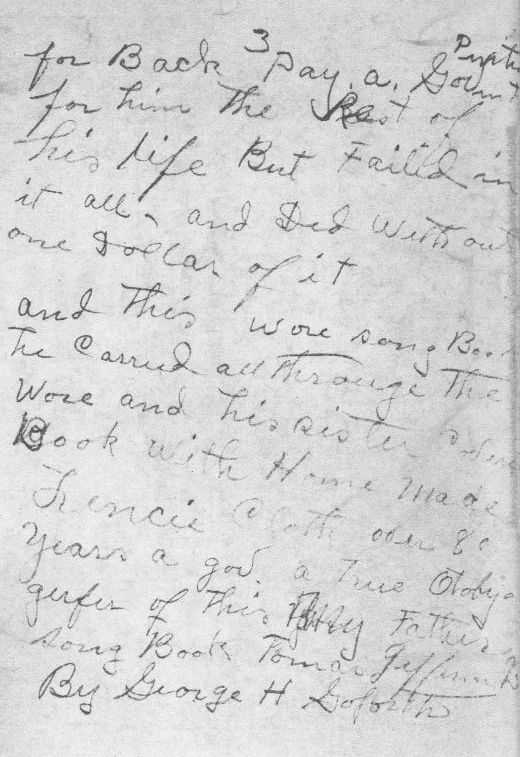 3
for Back Pay. a.
for him the Rest of
his life But Failed in
it all and Did With out
one Dollar of it
and this wore song Boo
he Carred all through the
Wore and his sister
Book With Home Made
Cloth over 80
Years a go a True
of this My Father
song Book Tomas Jefferson
By George H Goforth